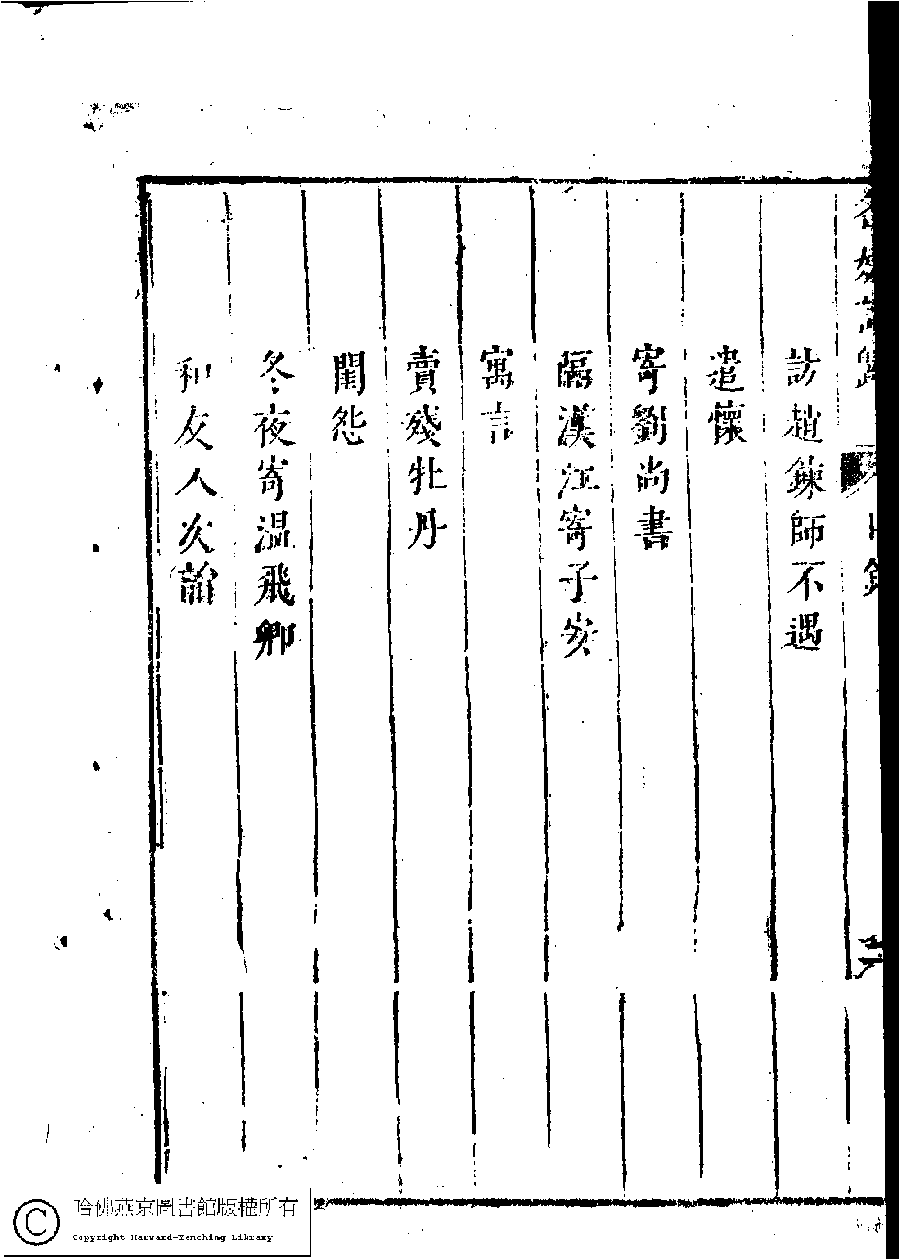 名媛詩歸 目錄
訪趙鍊師不遇
遣懷
寄劉尚書
隔漢江寄子安
寓言
賣殘牡丹
閨怨
冬夜寄溫飛卿
和友人次韻
哈佛燕京圖書館版權所有
Copyright Harvard-Yenching Library